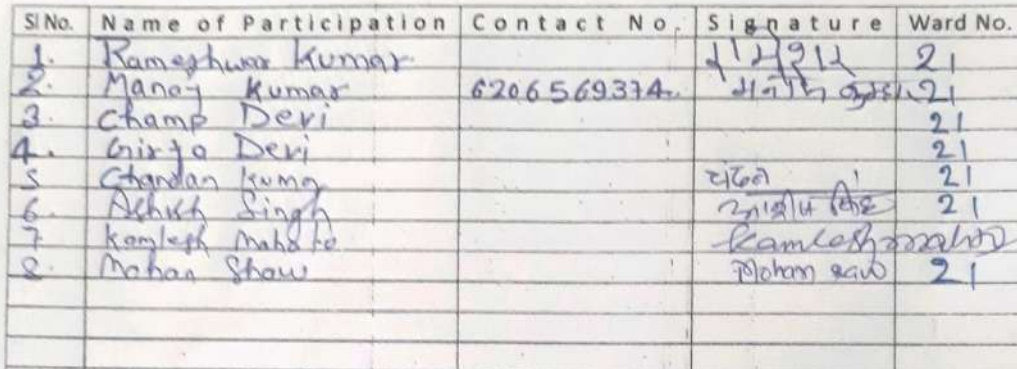 Sl No. Name of Participation Contact No. Signature Ward No.
1. Rameshwar Kumar रामेश्वर 21
2. Manoj Kumar 6206569374 मनोज कुमार 21
3. Champ Devi 21
4. Girja Devi 21
5 Chandan Kuma चंदन 21
6. Ashish Singh आशीष सिंह 21
7 Kamlesh Mahato Kamlesh mahato
8. Mohan Shaw Mohan saw 21